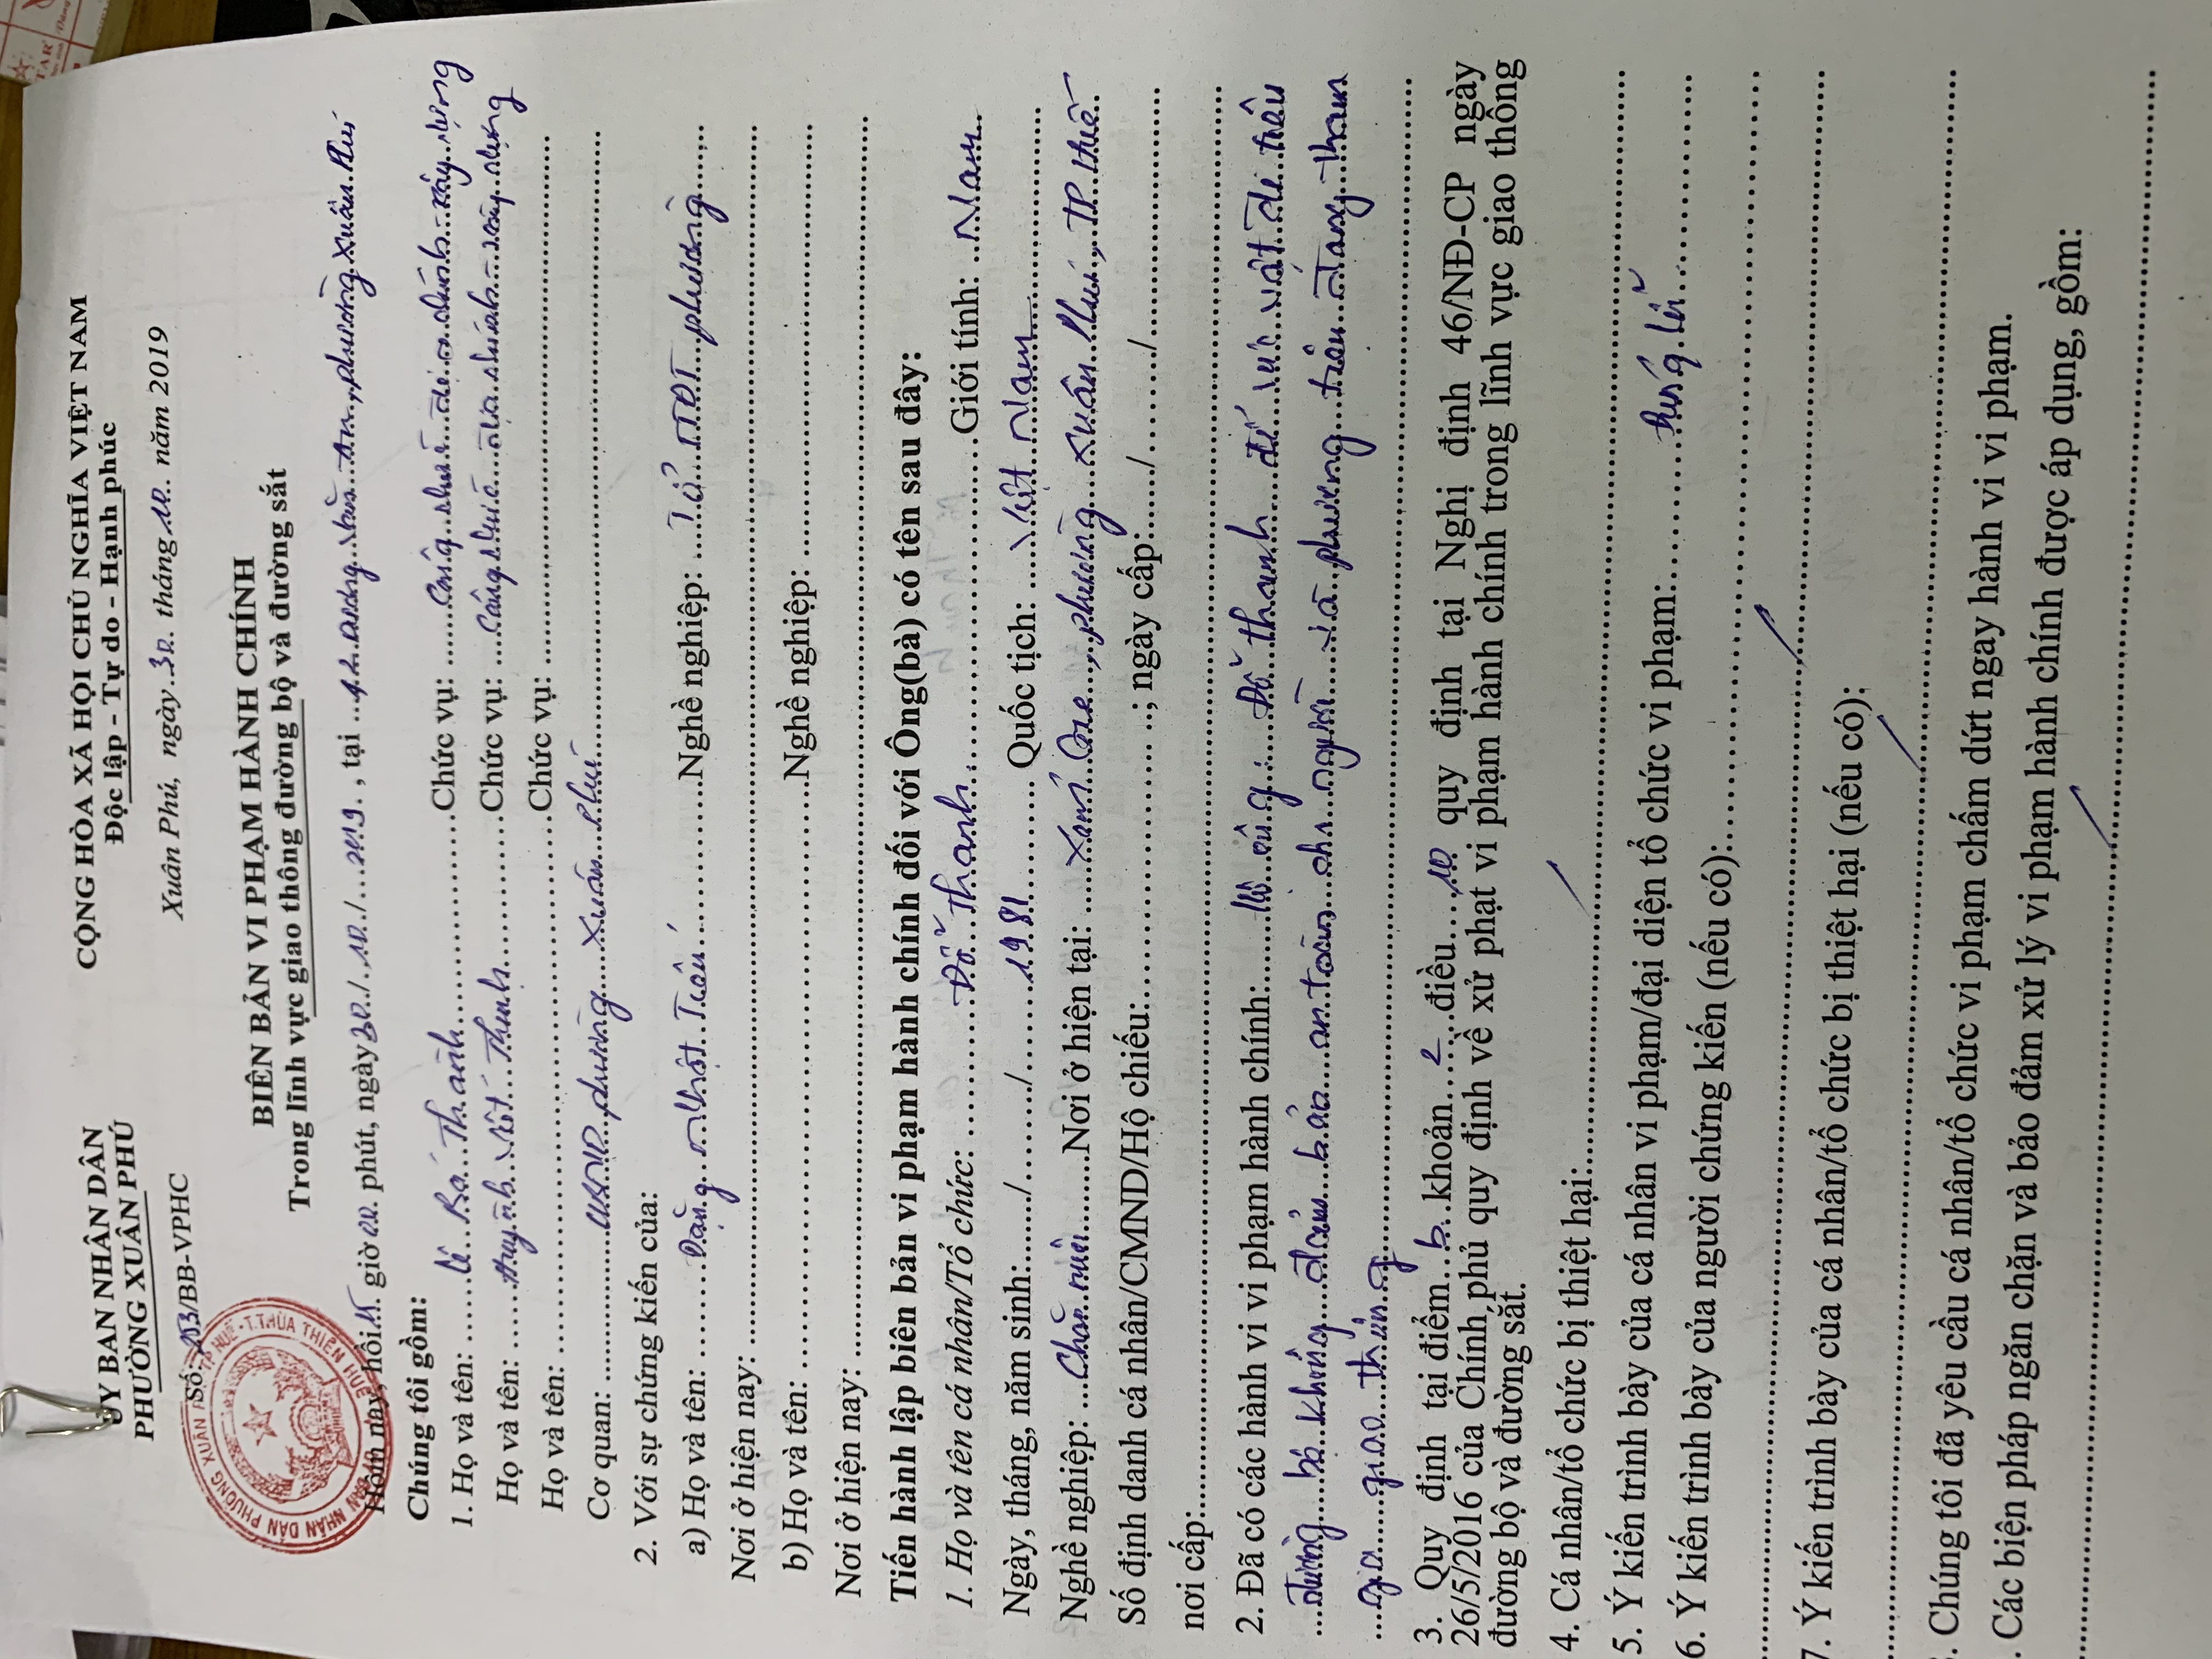 ỦY BAN NHÂN DÂN
PHƯỜNG XUÂN PHÚ
CỘNG HÒA XÃ HỘI CHỦ NGHĨA VIỆT NAM
Độc lập - Tự do - Hạnh phúc
Số: /BB-VPHC
Xuân Phú, ngày 30 tháng 10 năm 2019
BIÊN BẢN VI PHẠM HÀNH CHÍNH
Trong lĩnh vực giao thông đường bộ và đường sắt
Hôm nay, hồi giờ 00 phút, ngày 30/10/2019, tại 42 Dương Văn An, phường Xuân Phú
Chúng tôi gồm:
1. Họ và tên: Lê Bá Thành Chức vụ: Công chức địa chính - xây dựng
Họ và tên: Huỳnh Viết Thịnh Chức vụ: Công chức địa chính - xây dựng
Họ và tên: Chức vụ:
Cơ quan: UBND phường Xuân Phú
2. Với sự chứng kiến của:
a) Họ và tên: Đặng Nhật Tiến Nghề nghiệp: Tổ TTĐT phường
Nơi ở hiện nay:
b) Họ và tên: Nghề nghiệp:
Nơi ở hiện nay:
Tiến hành lập biên bản vi phạm hành chính đối với Ông(bà) có tên sau đây:
1. Họ và tên cá nhân/Tổ chức: Đỗ Thanh Giới tính: Nam
Ngày, tháng, năm sinh: / / 1981 Quốc tịch: Việt Nam
Nghề nghiệp: Chăn nuôi Nơi ở hiện tại: Xóm , phường Xuân Phú, TP Huế
Số định danh cá nhân/CMND/Hộ chiếu: ; ngày cấp: / /
nơi cấp:
2. Đã có các hành vi vi phạm hành chính: Đỗ Thanh để súc vật đi trên
đường bộ không đảm bảo an toàn cho người và phương tiện đang tham
gia giao thông
3. Quy định tại điểm b khoản 2 điều 10 quy định tại Nghị định 46/NĐ-CP ngày
26/5/2016 của Chính phủ quy định về xử phạt vi phạm hành chính trong lĩnh vực giao thông
đường bộ và đường sắt.
4. Cá nhân/tổ chức bị thiệt hại:
5. Ý kiến trình bày của cá nhân vi phạm/đại diện tổ chức vi phạm:
6. Ý kiến trình bày của người chứng kiến (nếu có):
7. Ý kiến trình bày của cá nhân/tổ chức bị thiệt hại (nếu có):
. Chúng tôi đã yêu cầu cá nhân/tổ chức vi phạm chấm dứt ngay hành vi vi phạm.
. Các biện pháp ngăn chặn và bảo đảm xử lý vi phạm hành chính được áp dụng, gồm: